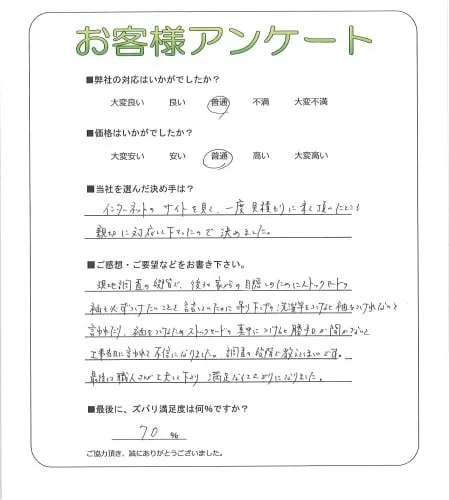 お客様アンケート
■弊社の対応はいかがでしたか？
大変良い 良い 普通 不満 大変不満
■価格はいかがでしたか？
大変安い 安い 普通 高い 大変高い
■当社を選んだ決め手は？
インターネットのサイトを見て、一度見積りに来て頂いたところ
親切に対応して下さったので決めました。
■ご感想・ご要望などをお書き下さい。
現地調査の段階で、後ろの家からの目隠しのためにストックヤードの
袖を必ずつけたいことを言っていたのに吊り下げの洗濯竿をつけると袖をつけれないと
言われたり、袖をつけるためストックヤードの真中につけると勝手口が開かないと
工事当日に言われて不信になりました。調査の段階で教えてほしいです。
最後は職人さんが工夫して下さり満足な仕上がりになりました。
■最後に、ズバリ満足度は何％ですか？
70 %
ご協力頂き、誠にありがとうございました。